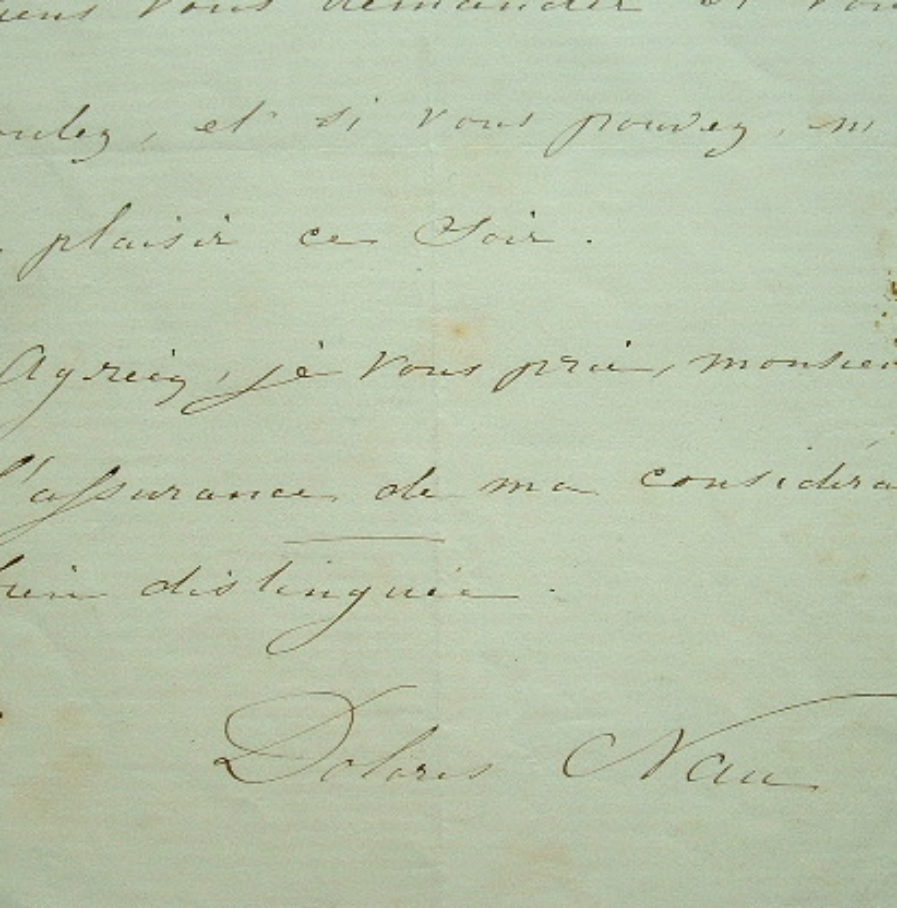 iens vous demander si vou
oulez, et si vous pouvez, m
plaisir ce Soir.
Agréez, je vous prie, monsieu
l'assurance de ma considéra
bien distinguée.
Dolores Nau